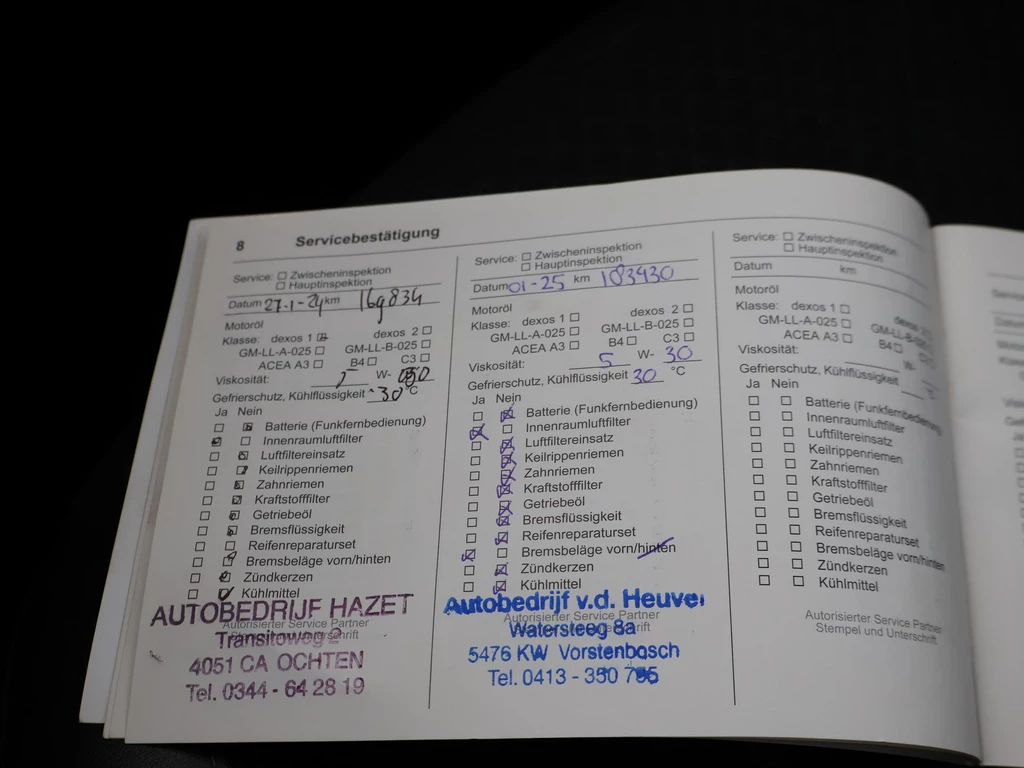 8 Servicebestätigung
Service: Zwischeninspektion
Hauptinspektion
Datum 27-1-24 km 169834
Motoröl
Klasse: dexos 1 dexos 2
GM-LL-A-025 GM-LL-B-025
ACEA A3 B4 C3
Viskosität: W-
Gefrierschutz, Kühlflüssigkeit -30 °C
Ja Nein
Batterie (Funkfernbedienung)
Innenraumluftfilter
Luftfiltereinsatz
Keilrippenriemen
Zahnriemen
Kraftstofffilter
Getriebeöl
Bremsflüssigkeit
Reifenreparaturset
Bremsbeläge vorn/hinten
Zündkerzen
Kühlmittel
Autorisierter Service Partner
AUTOBEDRIJF HAZET
Transitoweg 2
4051 CA OCHTEN
Tel. 0344 - 64 28 19
Service: Zwischeninspektion
Hauptinspektion
Datum 01-25 km 183430
Motoröl
Klasse: dexos 1 dexos 2
GM-LL-A-025 GM-LL-B-025
ACEA A3 B4 C3
Viskosität: 5 W- 30
Gefrierschutz, Kühlflüssigkeit 30 °C
Ja Nein
Batterie (Funkfernbedienung)
Innenraumluftfilter
Luftfiltereinsatz
Keilrippenriemen
Zahnriemen
Kraftstofffilter
Getriebeöl
Bremsflüssigkeit
Reifenreparaturset
Bremsbeläge vorn/hinten
Zündkerzen
Kühlmittel
Autorisierter Service Partner
Autobedrijf v.d. Heuvel
Watersteeg 8a
5476 KW Vorstenbosch
Tel. 0413 - 350 795
Service: Zwischeninspektion
Hauptinspektion
Datum km
Motoröl
Klasse: dexos 1 dexos
GM-LL-A-025 GM-LL-B-025
ACEA A3 B4 C3
Viskosität: W-
Gefrierschutz, Kühlflüssigkeit °C
Ja Nein
Batterie (Funkfernbedienung)
Innenraumluftfilter
Luftfiltereinsatz
Keilrippenriemen
Zahnriemen
Kraftstofffilter
Getriebeöl
Bremsflüssigkeit
Reifenreparaturset
Bremsbeläge vorn/hinten
Zündkerzen
Kühlmittel
Autorisierter Service Partner
Stempel und Unterschrift